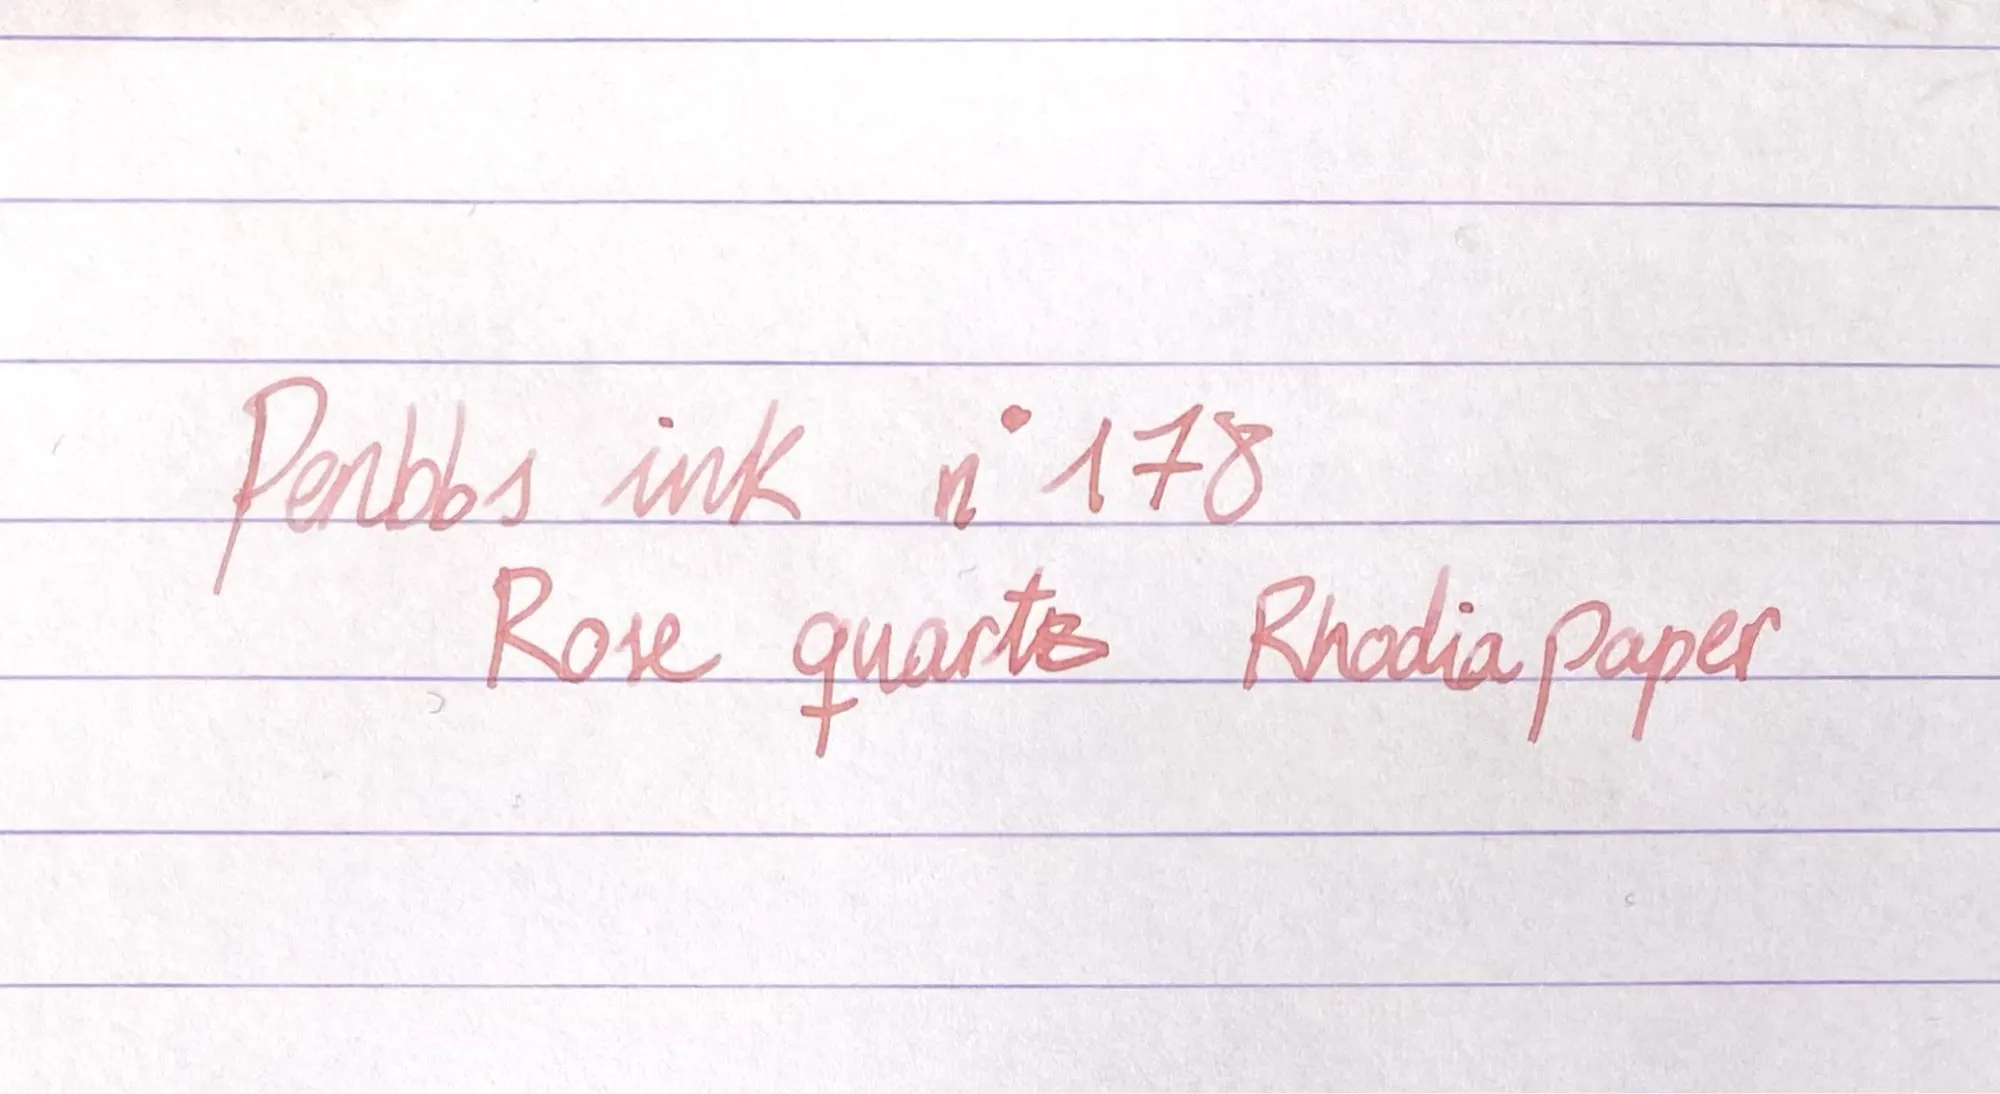 Penbbs ink n°178
Rose quartz Rhodia paper